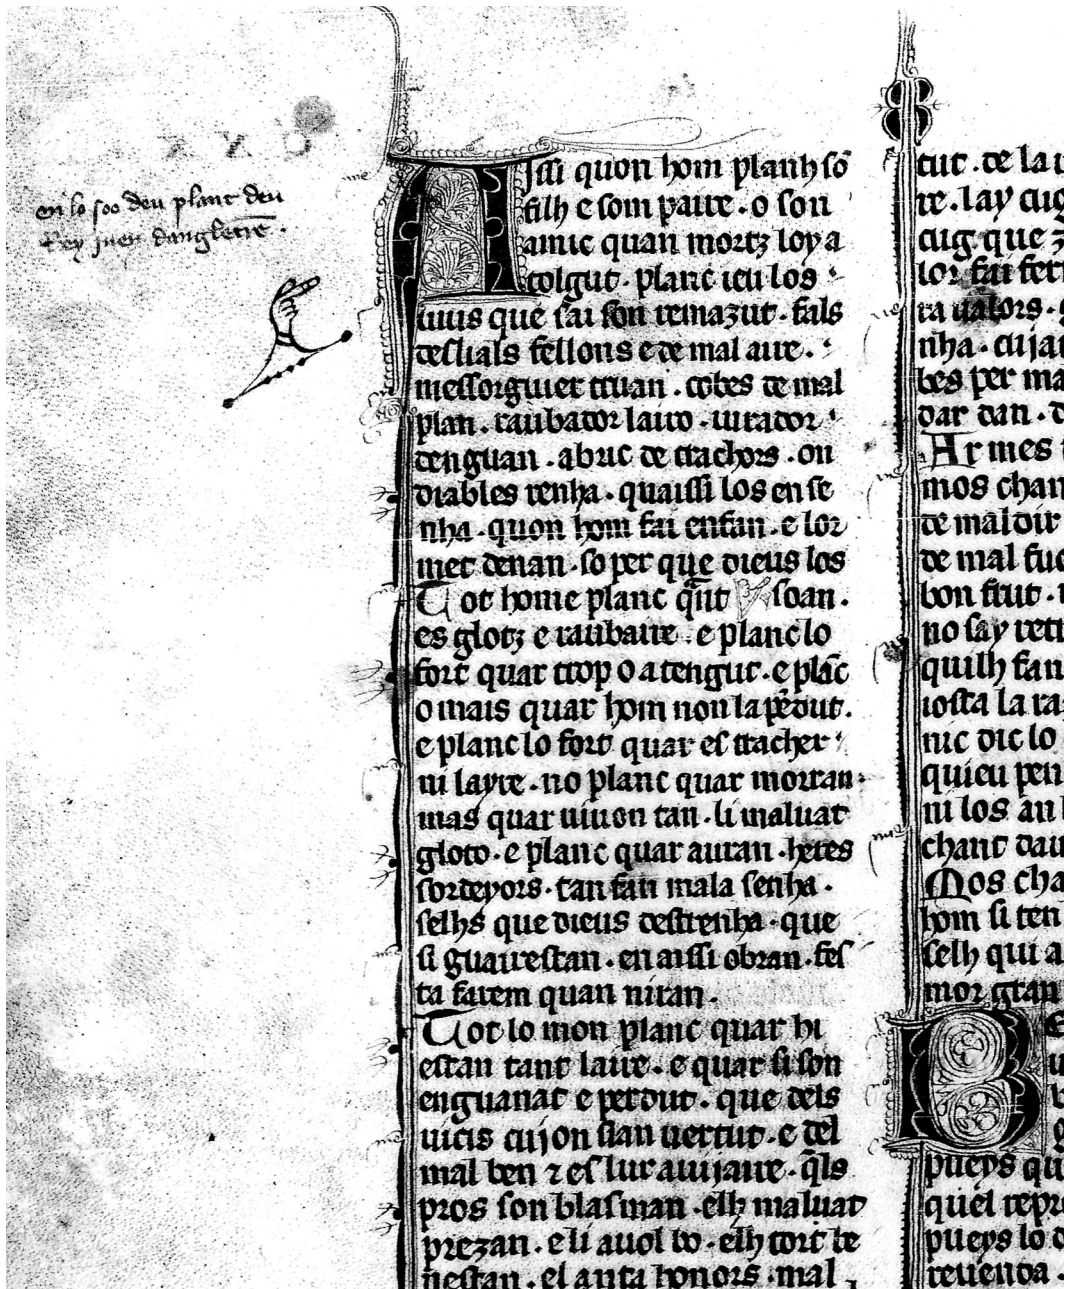 CXX
en lo soo deu plant deu
Rey jnen danglet're.
Aissi quon hom planh so̅
filh e som paire. o son
amic quan mortz loy a
tolgut. planc ieu los
uius que sai son remazut. fals
deslials fellons e de mal aire.
messorguier truan. cobes de mal
plan. raubador lairo. iurador
denguan. abric de trachors. on
diables renha. quaissi los ense
nha. quon hom fai enfan. e lor
met denan. so per que dieus los
Tot home planc qu̅t soan.
es glotz e raubaire. e planc lo
fort quar trop o a tengut. e pla̅c
o mais quar hom non la perdut.
e planc lo fort quar es tracher
ni layre. no planc quar morran.
mas quar uiuon tan. li maluat
gloto. e planc quar auran. heres
sordeyors. tan fan mala senha.
selhs que dieus destrenha. que
si guairestan. en aissi obran. fes
ta farem quan niran.
Tot lo mon planc quar hi
estan tant laire. e quar si son
enguanat e perdut. que dels
uicis cujon sian uertut. e del
mal ben ⁊ es lur auijaire. q̅ls
pros son blasman. elh maluat
prezan. e li auol bo. elh tort be
nestan. el anta honors. mal
tut. de la
re. lay
cug que
lor fai
ra ualors.
nha. cujar
bes per ma
dar dan.
Ar mes
mos chan
de maldir
de mal
bon frut.
no say
quilh fan
iosta la ra
nic dic lo
quieu pen
ni los an
chant
Mos cha
hom si ten
selh qui a
mor gran
B
pueys qu
quel repr
pueys lo
reuenda.